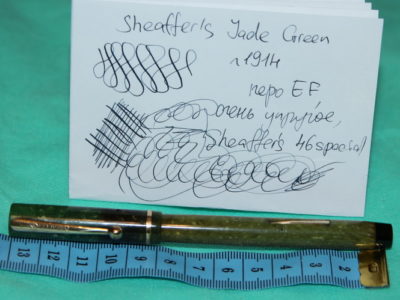 Sheaffer's Jade Green
~1914
перо EF
очень упругое,
Sheaffer's 46 special
13 12 11 10 9 8 7 6 5 4 3 2